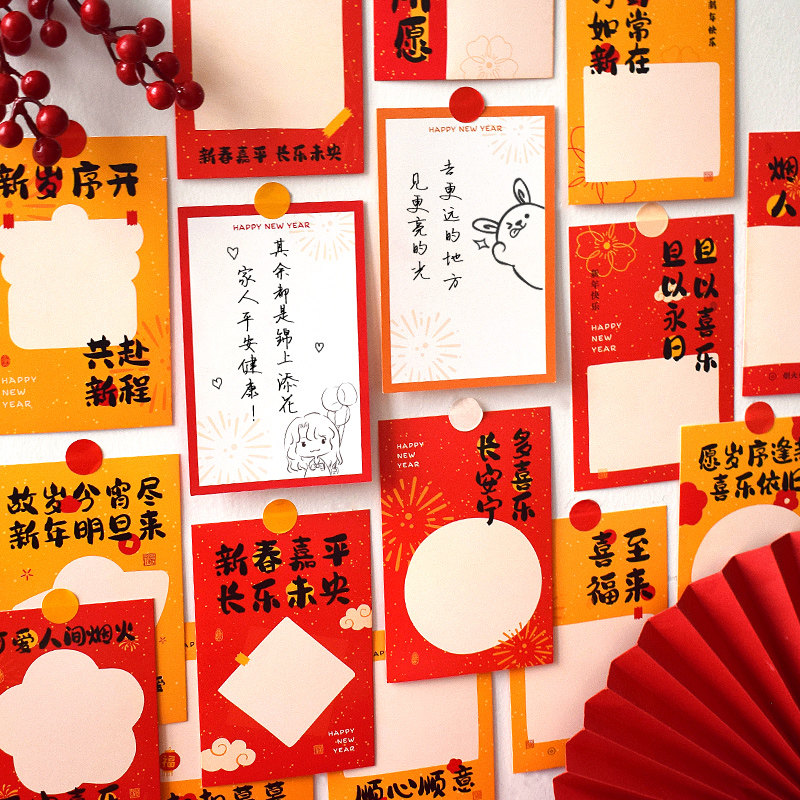 愿
常在
如新
新年快乐
新春嘉平 长乐未央
新岁序开
共赴
新程
HAPPY
NEW
YEAR
HAPPY NEW YEAR
其余都是錦上添花
家人平安健康！
HAPPY NEW YEAR
去更远的地方
见更亮的光
旦以喜乐
旦以永日
新年快乐
HAPPY
NEW
YEAR
烟
人
故岁今宵尽
新年明旦来
新春嘉平
长乐未央
HAPPY
NEW
YEAR
HAPPY
NEW
YEAR
多喜乐
长安宁
至来
喜福
愿岁序逢
喜乐依旧
可爱人间烟火
福
顺心顺意